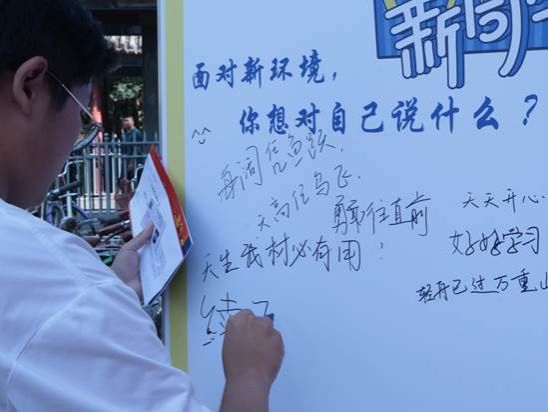 新同
面对新环境，
你想对自己说什么？
海阔任鱼跃,
天高任鸟飞.
勇往直前
天天开心
天生我材必有用！
好好学习
轻舟已过万重山